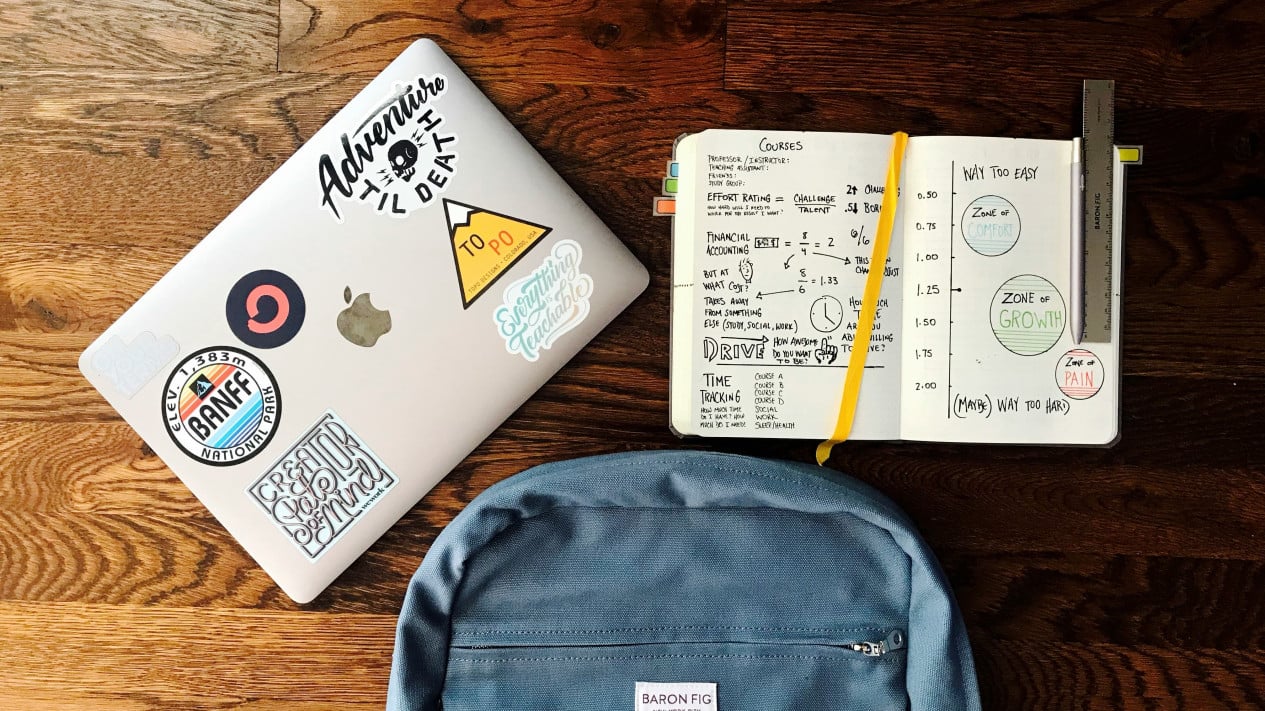 Adventure
TIL DEATH
TO PO
TOPO DESIGNS • COLORADO, USA
Everything
Teachable
ELEV. 1,383m
BANFF
NATIONAL PARK
CREATOR
State
OF Mind
wework
COURSES
PROFESSOR / INSTRUCTOR:
TEACHING ASSISTANT:
FRIENDS:
STUDY GROUP:
EFFORT RATING = CHALLENGE
TALENT
HOW HARD WILL I NEED TO
WORK FOR THE RESULT I WANT?
2↑
.5↓
FINANCIAL
ACCOUNTING
= 8
4
= 2
6/6
THIS
BUT AT
WHAT COST?
8
6
= 1.33
TAKES AWAY
FROM SOMETHING
ELSE (STUDY, SOCIAL, WORK)
HOW
ARE
TO
DRIVE
HOW AWESOME
DO YOU WANT
TO BE?
TIME
TRACKING
HOW MUCH TIME
DO I HAVE? HOW
MUCH DO I NEED?
COURSE A
COURSE B
COURSE C
COURSE D
SOCIAL
WORK
SLEEP/HEALTH
WAY TOO EASY
0.50
0.75
1.00
1.25
1.50
1.75
2.00
ZONE OF
COMFORT
ZONE OF
GROWTH
ZONE OF
PAIN
(MAYBE) WAY TOO HARD
BARON FIG
BARON FIG